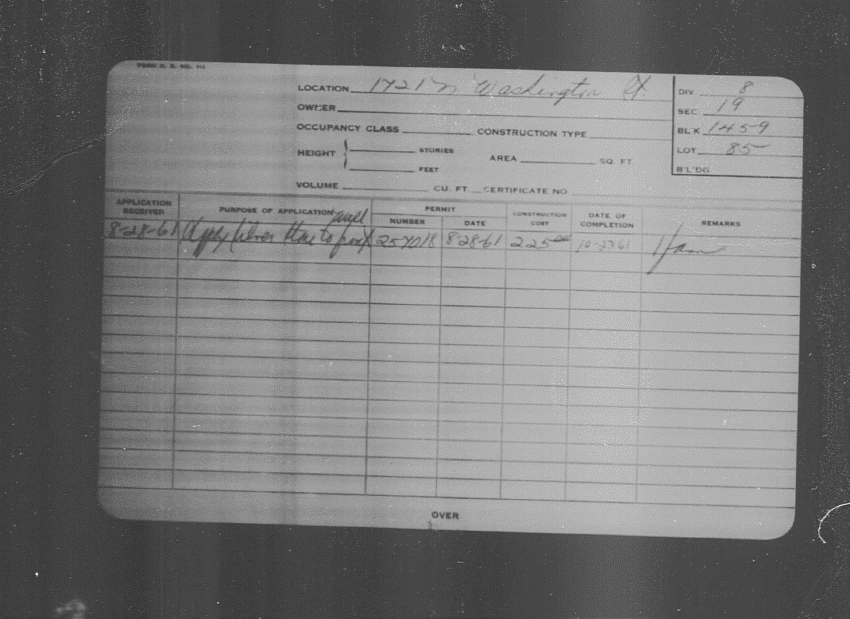 LOCATION 1721 N Washington St. DIV. 8
OWNER SEC 19
OCCUPANCY CLASS CONSTRUCTION TYPE BL'K 1459
HEIGHT STORIES AREA SQ. FT LOT 85
FEET B'L'DG
VOLUME CU. FT. CERTIFICATE NO.
APPLICATION RECEIVED PURPOSE OF APPLICATION PERMIT NUMBER DATE CONSTRUCTION COST DATE OF COMPLETION REMARKS
wall
8-28-61 Apply to front 257018 8-28-61 225.00 10-23-61
OVER